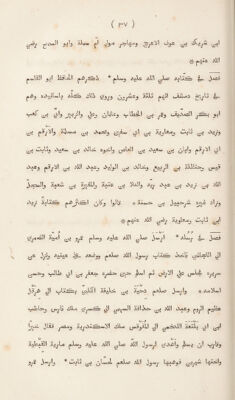 ( ٣٧ )
ابي شريك بن عوف الاعرج ومهاجر مولى ام سلمة وابو السمح رضي
الله عنهم *
فصل في كتابه صلى الله عليه وسلم * ذكرهم الحافظ ابو القاسم
في تاريخ دمشق انهم ثلثة وعشرون وروى ذلك كله باسانيده وهم
ابو بكر الصديق وعمر بن الخطاب وعثمان وعلي والزبير وابي بن كعب
وزيد بن ثابت ومعاوية بن ابي سفين ومحمد بن مسلمة والارقم بن
ابي الارقم وابان بن سعيد بن العاص واخوه خالد بن سعيد وثابت بن
قيس وحنظلة بن الربيع وخالد بن الوليد وعبد الله بن الارقم وعبد
الله بن زيد بن عبد ربه والعلا بن عتبة والمغيرة بن شعبة والسجل
وزاد غيره شرحبيل بن حسنة * قالوا وكان اكثرهم كتابة زيد
ابن ثابت ومعاوية رضي الله عنهم *
فصل في رسله * ارسل صلى الله عليه وسلم عمرو بن امية الضمري
الى النجاشي فاخذ كتاب رسول الله صلعم ووضعه على عينيه ونزل عن
سريره فجلس على الارض ثم اسلم حين حضره جعفر بن ابي طالب وحسن
اسلامه * وارسل صلعم دحية بن خليفة الكلبي بكتاب الى هرقل
عظيم الروم وعبد الله بن حذافة السهمي الى كسرى ملك فارس وحاطب
ابن ابي بلتعة اللخمي الى المقوقس ملك الاسكندرية ومصر فقال خيرا
وقارب ان يسلم واهدى لرسول الله صلى الله عليه وسلم مارية القبطية
واختها شيرين فوهبها رسول الله صلعم لحسان بن ثابت * وارسل عمرو